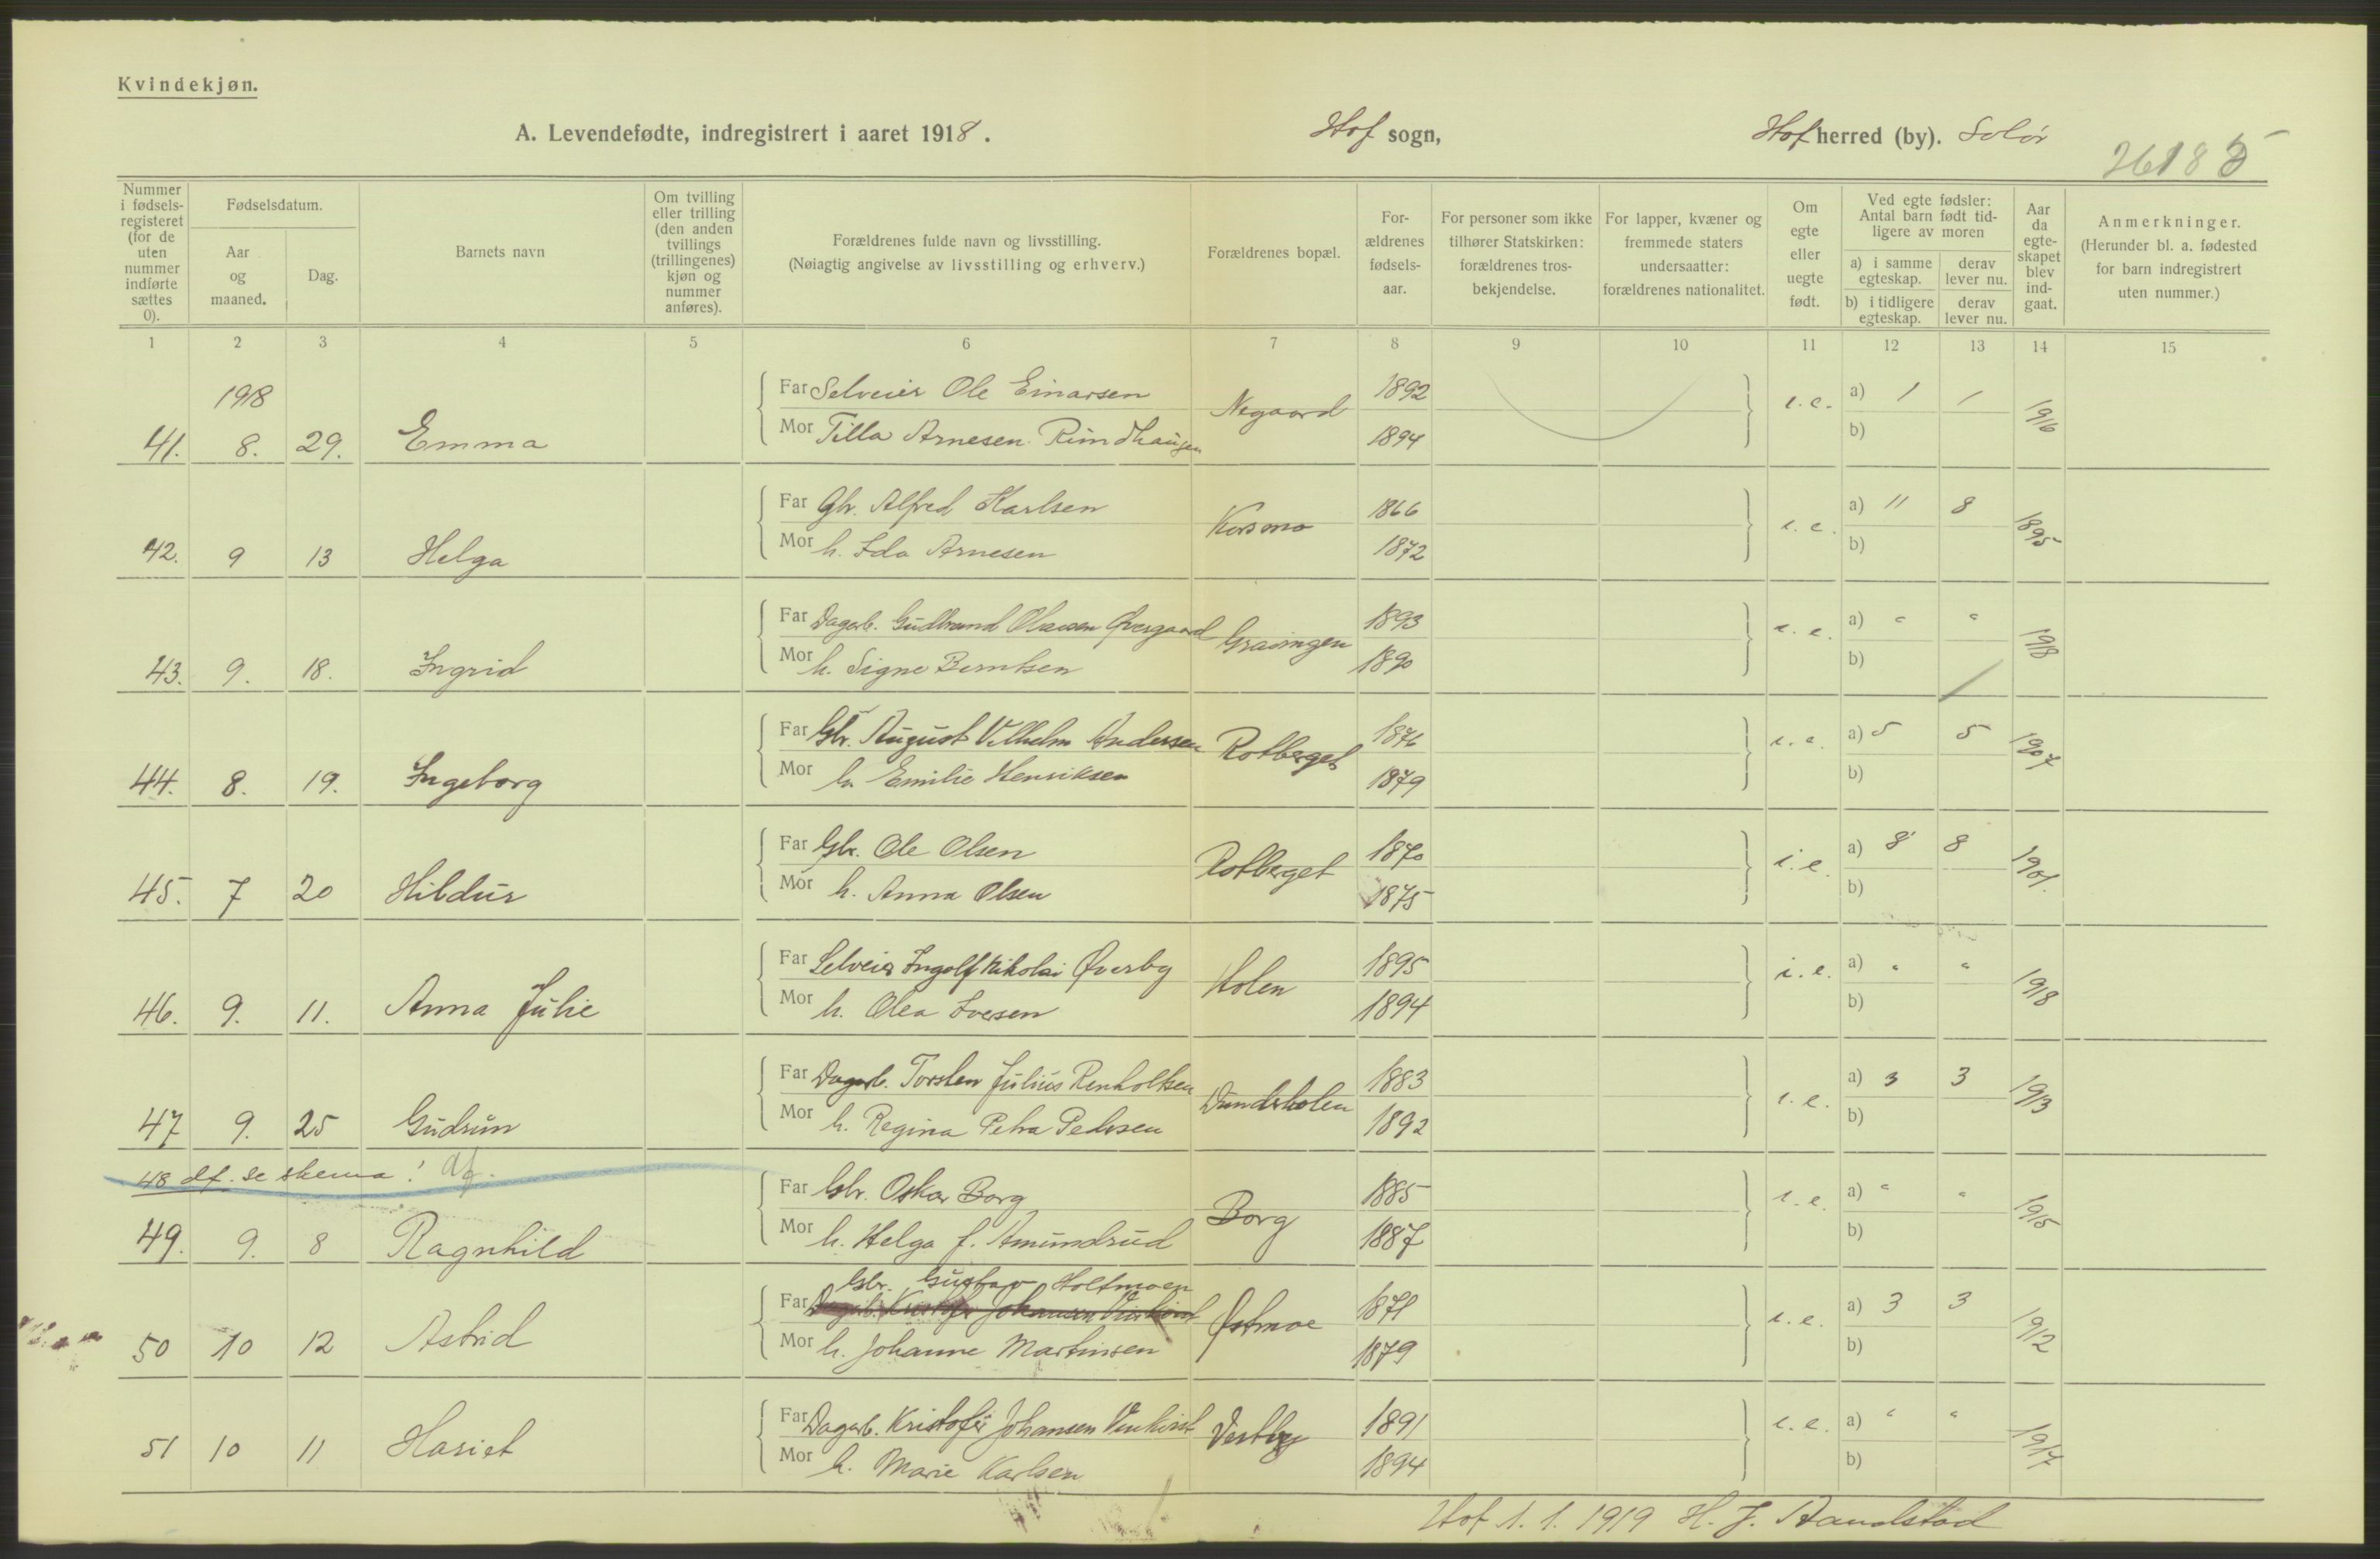 Kvindekjøn.
A. Levendefødte, indregistrert i aaret 1918.
Hof sogn,
Hof herred (by). Solør
26185
Nummer i fødselsregisteret (for de uten nummer indførte sættes 0).
Fødselsdatum.
Aar og maaned.
Dag.
Barnets navn
Om tvilling eller trilling (den anden tvillings (trillingenes) kjøn og nummer anføres).
Forældrenes fulde navn og livsstilling.
(Nøiagtig angivelse av livsstilling og erhverv.)
Forældrenes bopæl.
Forældrenes fødselsaar.
For personer som ikke tilhører Statskirken: forældrenes trosbekjendelse.
For lapper, kvæner og fremmede staters undersaatter: forældrenes nationalitet.
Om egte eller uegte født.
Ved egte fødsler: Antal barn født tidligere av moren
a) i samme egteskap. derav lever nu.
b) i tidligere egteskap. derav lever nu.
Aar da egteskapet blev indgaat.
Anmerkninger.
(Herunder bl. a. fødested for barn indregistrert uten nummer.)
1 2 3 4 5 6 7 8 9 10 11 12 13 14 15
1918
Far Selveier Ole Einarsen 1892 a) 1 1
41. 8. 29. Emma Mor Tilla Arnesen Rundhaugen Negaard 1894 e.e. b) 1916
Far Gbr. Alfred Karlsen 1866 a) 11 8
42. 9 13 Helga Mor h. Ida Arnesen Korsmo 1872 i.e. b) 1895
Far Dagarb. Gudbrand Olausen Øvergaard 1893 a) " "
43. 9. 18. Ingrid Mor h. Signe Berntsen Grasingen 1890 i.e. b) 1918
Far Gbr. August Vilhelm Andersen 1876 a) 5 5
44. 8. 19. Ingeborg Mor h. Emilie Henriksen Rotberget 1879 i.e. b) 1907
Far Gbr. Ole Olsen 1870 a) 8 8
45. 7 20 Hildur Mor h. Anna Olsen Rotberget 1875 i.e. b) 1901.
Far Selveier Ingolf Nikolai Øverby 1895 a) " "
46. 9. 11. Anna Julie Mor h. Olea Iversen Holen 1894 i.e. b) 1918
Far Dagarb. Torsten Julius Renholtsen 1883 a) 3 3
47 9. 25 Gudrun Mor h. Regina Petra Pedersen Dunderholen 1892 i.e. b) 1913
48 df. se skema! df.
Far Gbr. Oskar Borg 1885 a) " "
49. 9. 8 Ragnhild Mor h. Helga f. Amundrud Borg 1887 i.e. b) 1915
Gbr. Gustav Holtmoen
Far Dagarb. Kristofer Johansen Vinkirst 1871 a) 3 3
50 10 12 Astrid Mor h. Johanne Martinsen Østmoe 1879 i.e. b) 1912
Far Dagarb. Kristofer Johansen Vinkirst 1891 a) " "
51 10 11 Hariet Mor h. Marie Karlsen Vestby 1894 i.e. b) 1917
Hof 1. 1. 1919 H. J. Aandstad